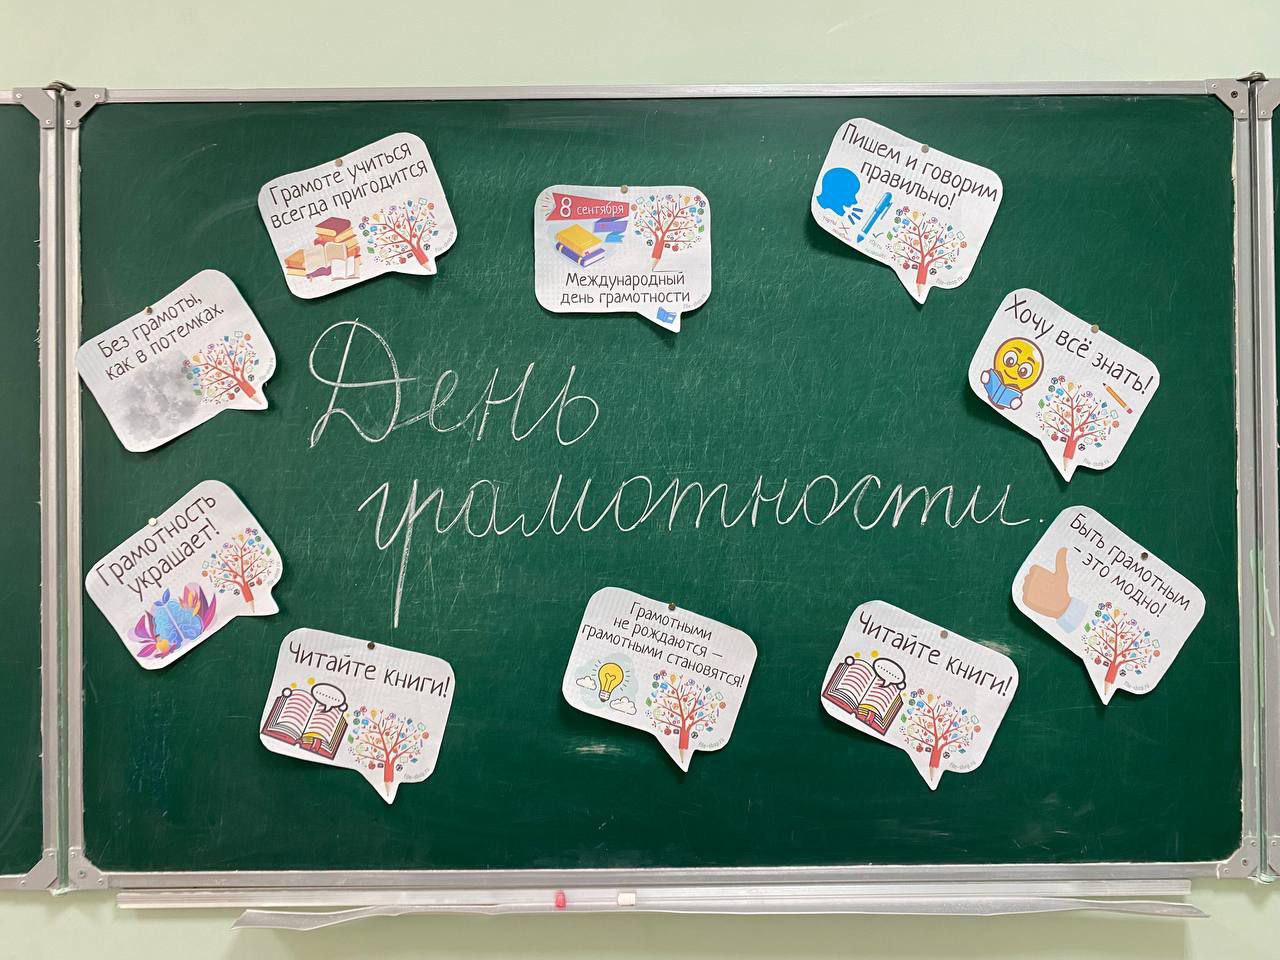 Грамоте учиться
всегда пригодится
8 сентября
Международный
день грамотности
Пишем и говорим
правильно!
Без грамоты,
как в потемках.
Хочу всё знать!
День
грамотности.
Грамотность
украшает!
Быть грамотным
– это модно!
Читайте книги!
Грамотными
не рождаются –
грамотными становятся!
Читайте книги!